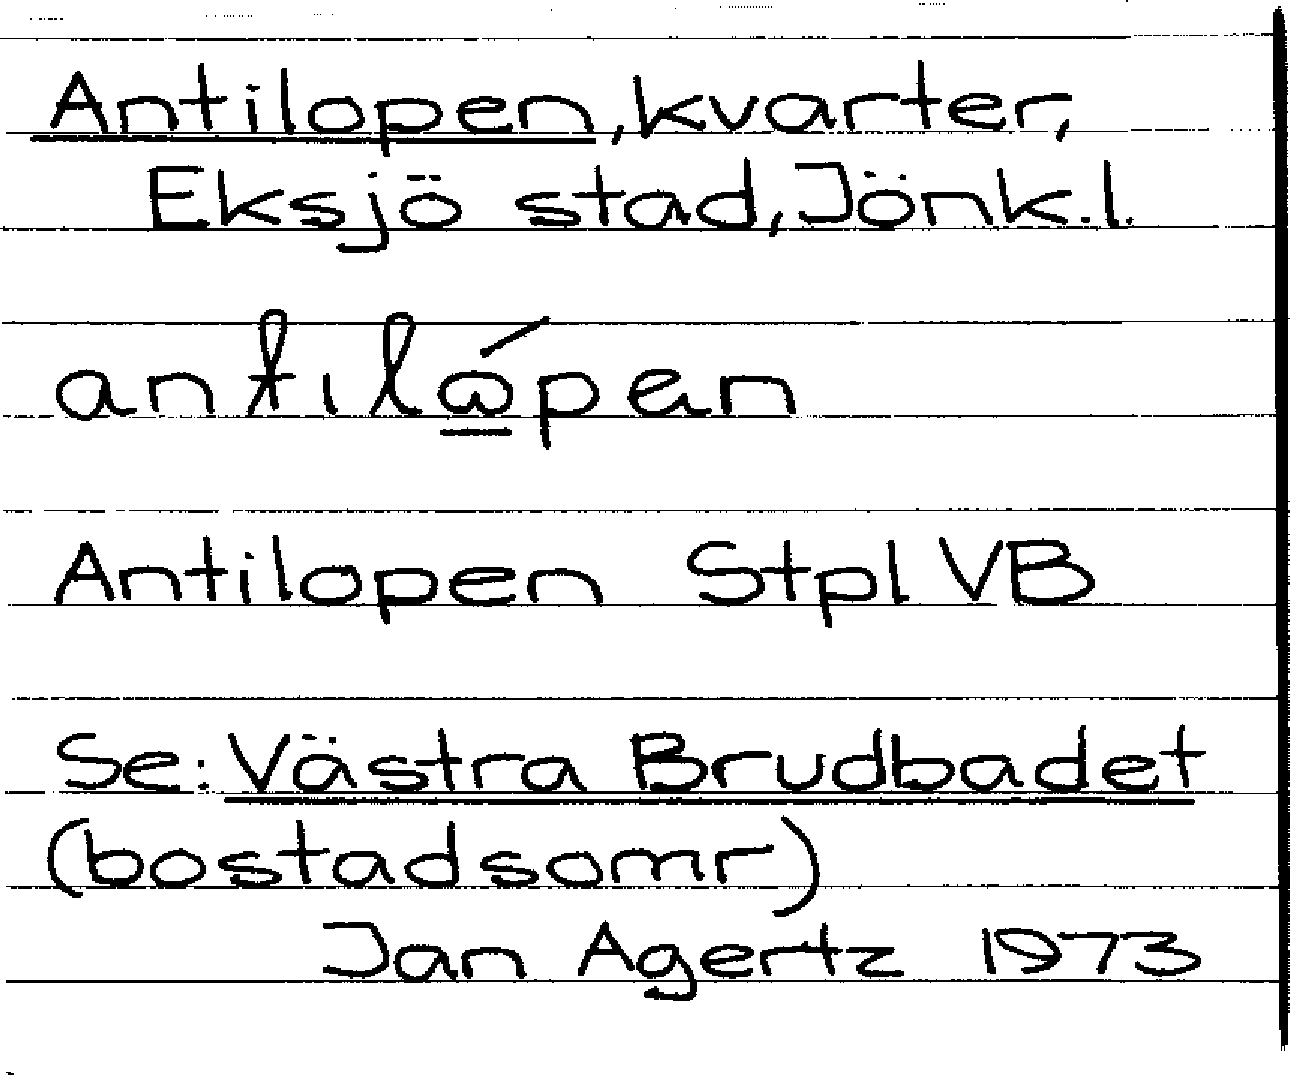 Antilopen, kvarter,
Eksjö stad, Jönk.l.
antilåpen
Antilopen Stpl VB
Se: Västra Brudbadet
(bostadsomr)
Jan Agertz 1973